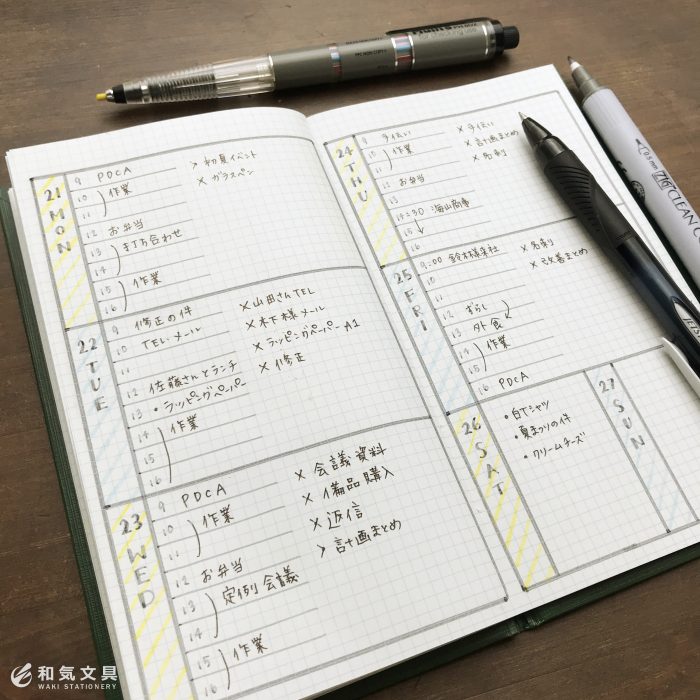 21 MON
9 PDCA
10 作業
11
12 お弁当
13 打ち合わせ
14
15 作業
16
> 初夏イベント
× ガラスペン
22 TUE
9 修正の件
10 TEL・メール
11
12 佐藤さんとランチ
13 • ラッピングペーパー
14 作業
15
16
× 山田さんTEL
× 木下様メール
× ラッピングペーパーA1
× 修正
23 WED
9 PDCA
10 作業
11
12 お弁当
13 定例会議
14
15 作業
16
× 会議資料
× 備品購入
× 返信
> 計画まとめ
24 THU
9 手伝い
10 作業
11
12 お弁当
13
14:30 海山商事
15
16
× 手伝い
× 計画まとめ
× 名刺
25 FRI
9:00 鈴木様来社
10
11
12 ずらし
13 外食
14 作業
15
16 PDCA
× 名刺
× 改善まとめ
26 SAT
• 白Tシャツ
• 夏まつりの件
• クリームチーズ
27 SUN
CLEAN C
和気文具
WAKI STATIONERY